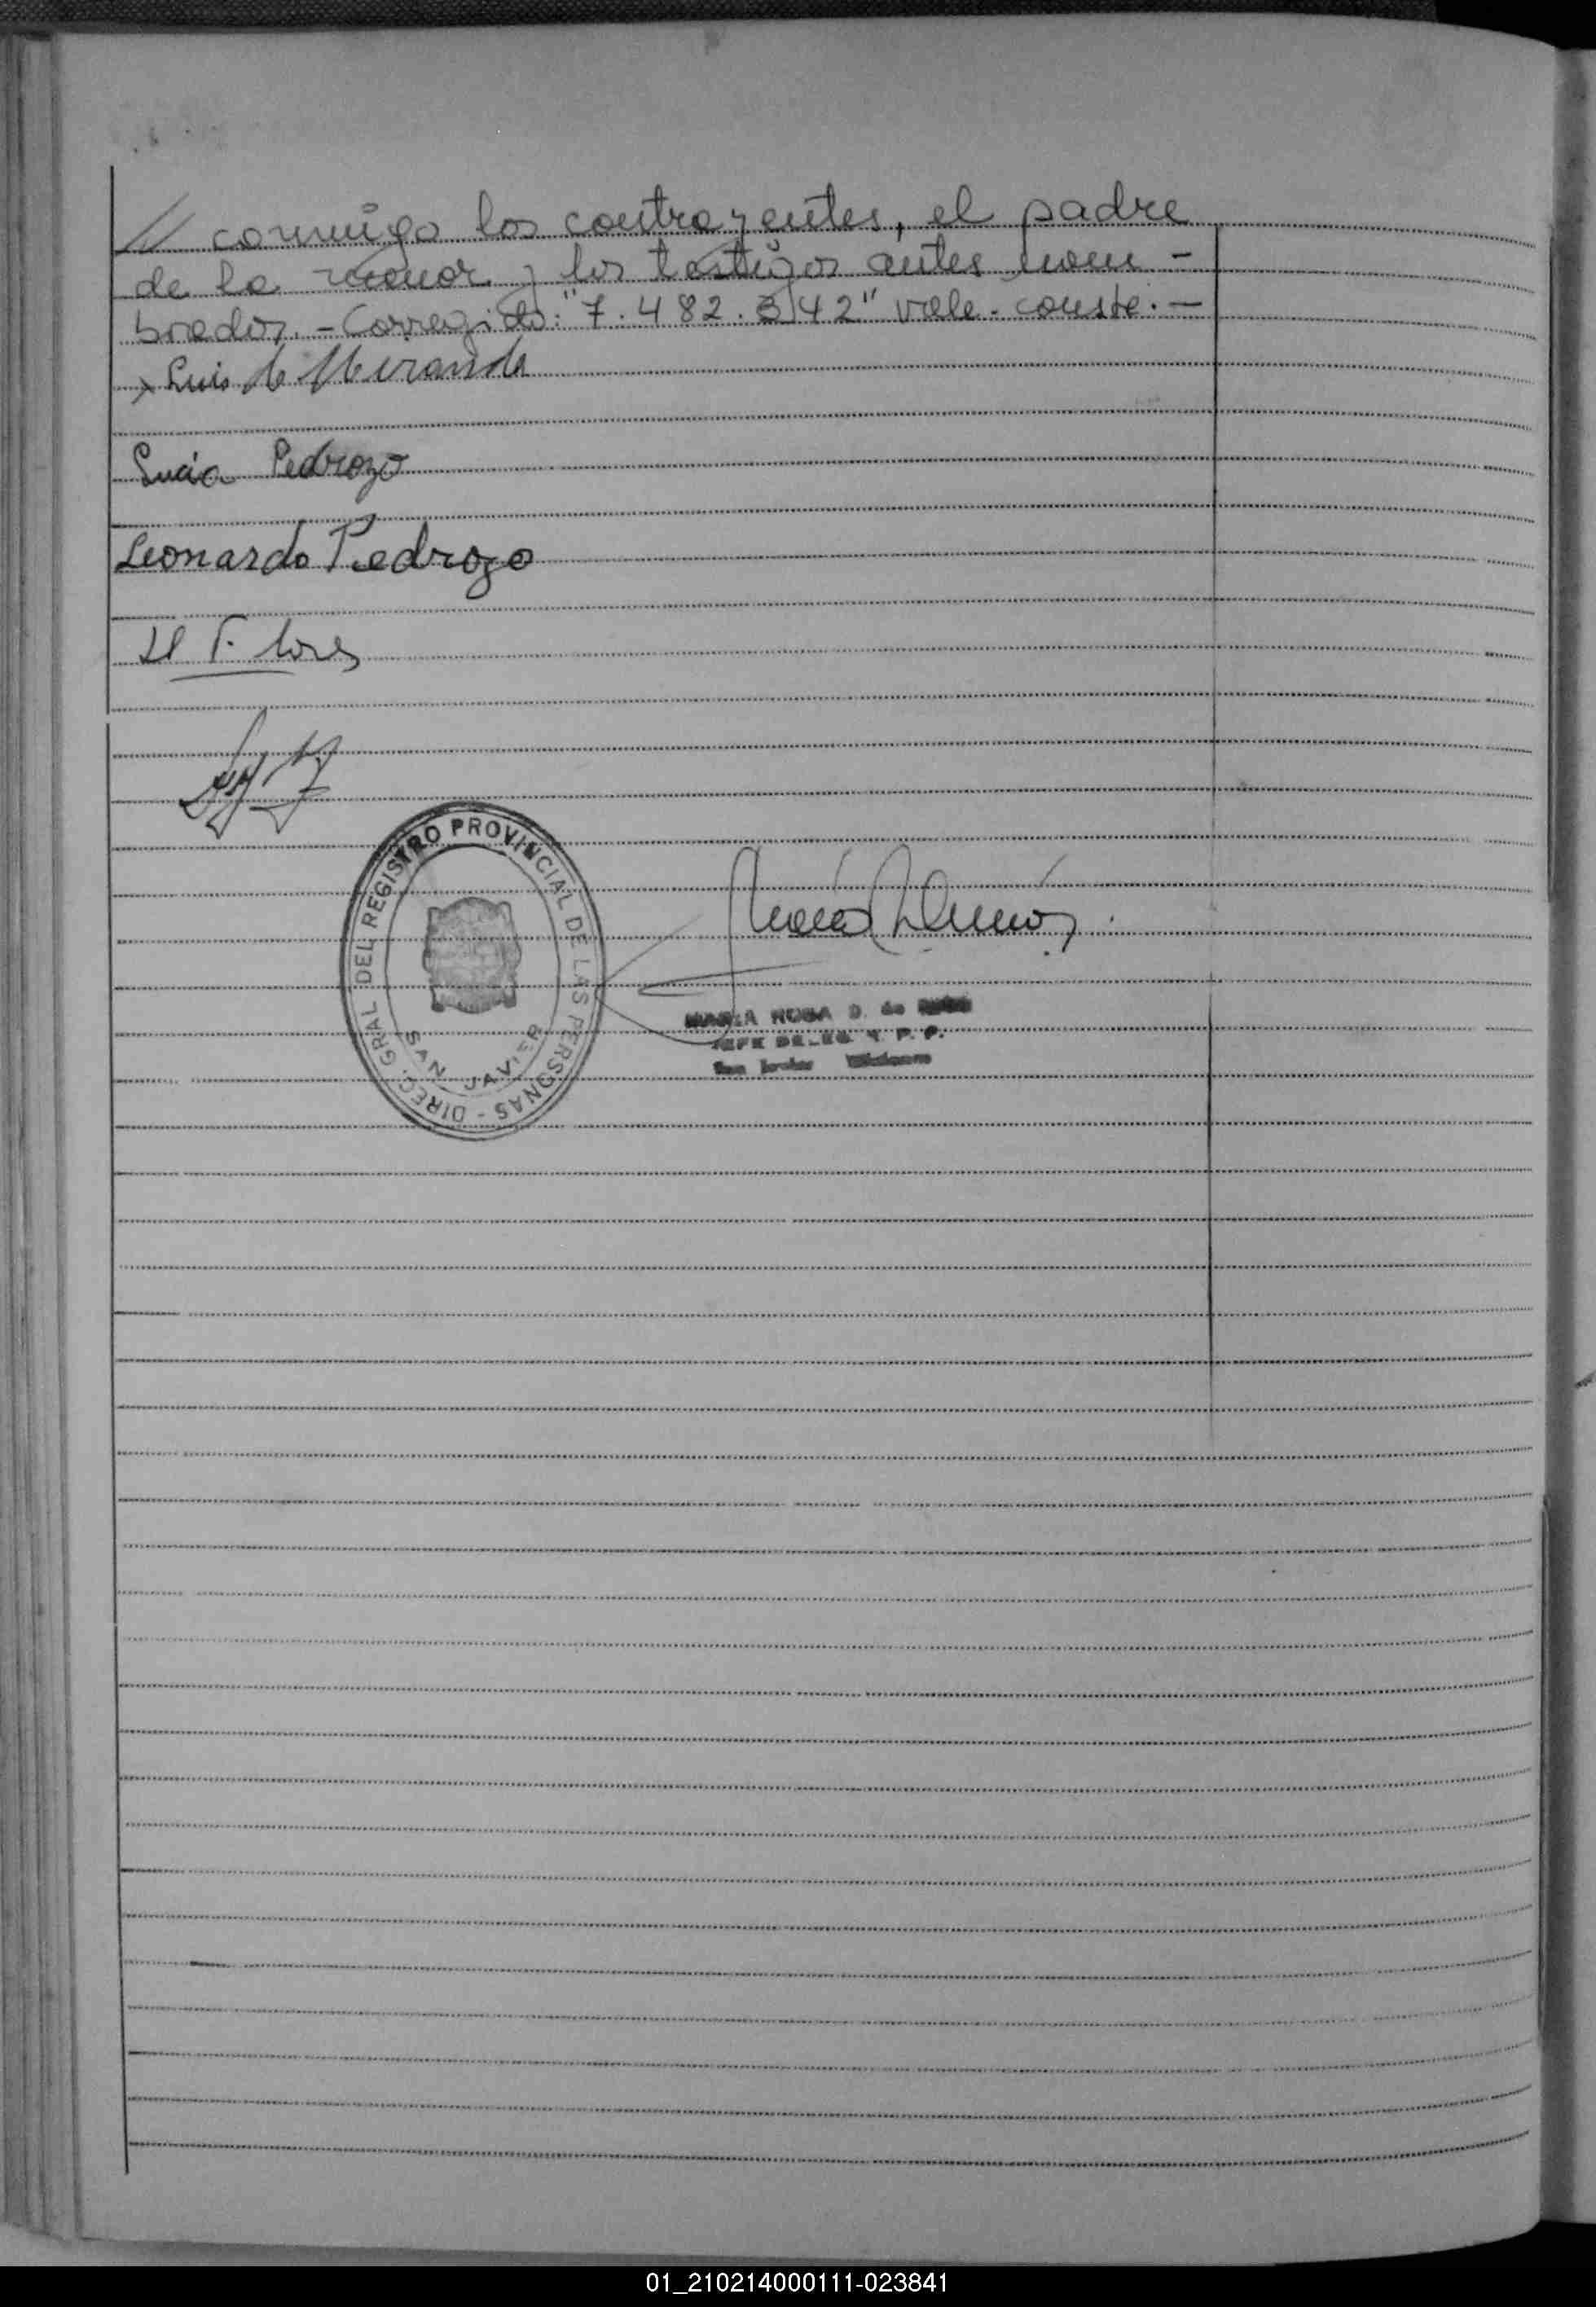 // conmigo los contrayentes, el padre
de la menor y los testigos antes nom-
brados.- Corregido: "7.482.342" vale. conste.-
x Luis A. Miranda
Lucia Pedrozo
Leonardo Pedrozo
DIREC. GRAL. DEL REGISTRO PROVINCIAL DE LAS PERSONAS -
SAN JAVIER
MARIA ROSA D. de
JEFE DELEG. R. P. P.
San Javier Misiones
01_210214000111-023841